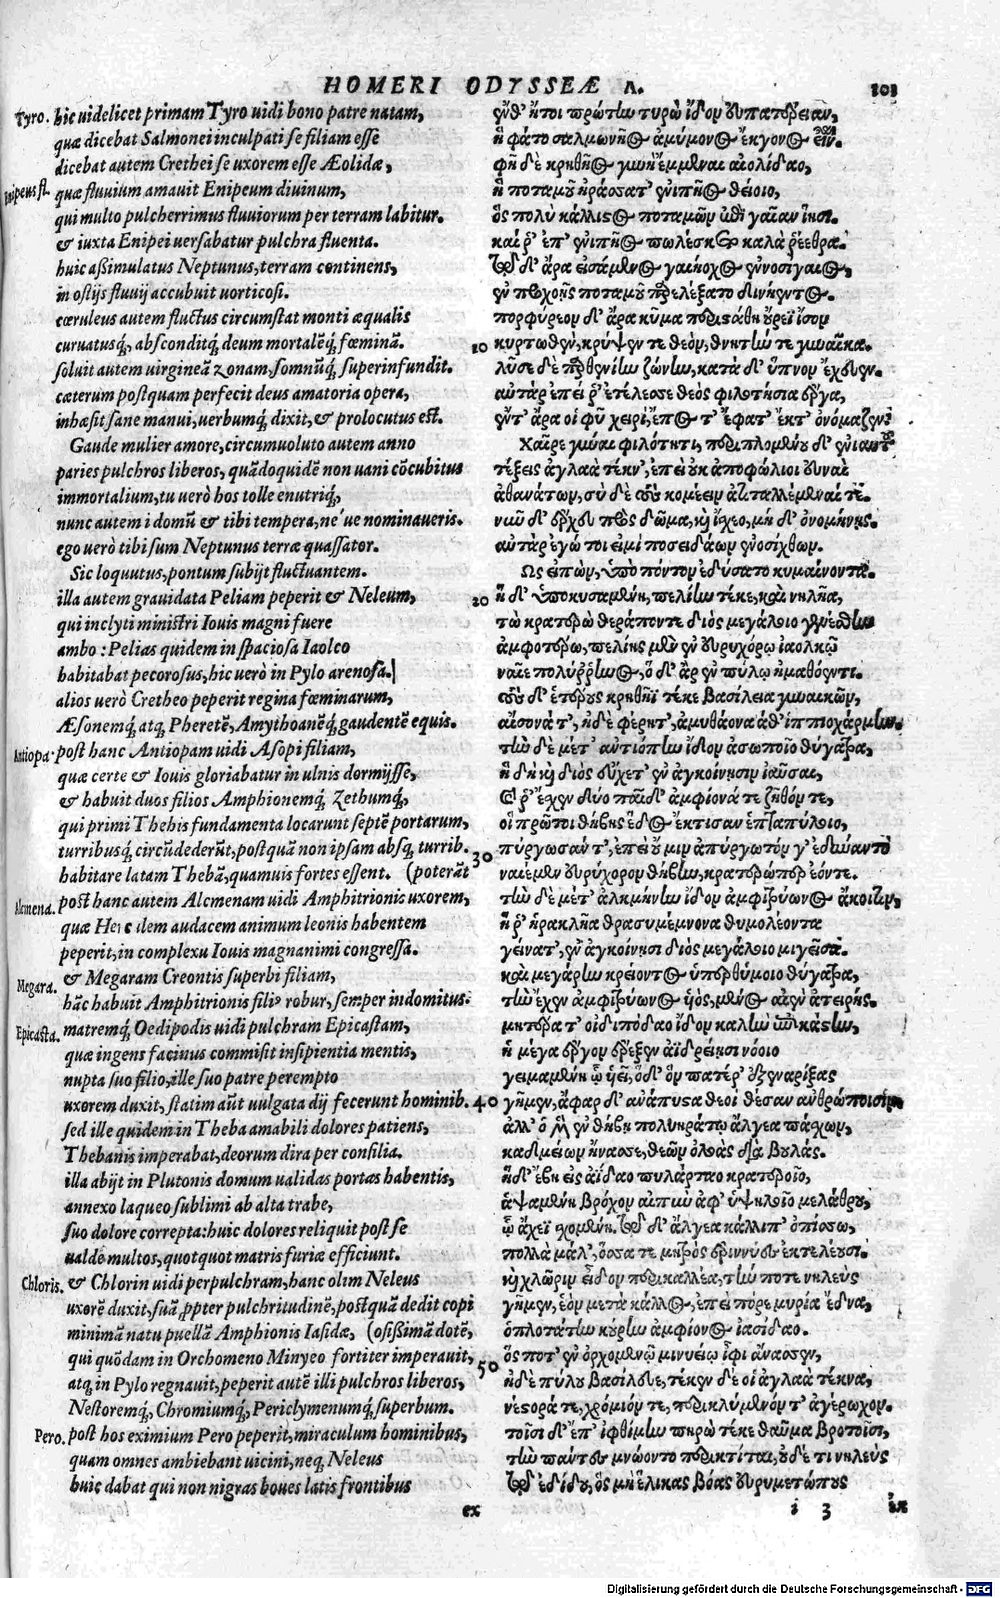 HOMERI ODYSSEÆ Λ. 101
Tyro. hic uidelicet primam Tyro uidi bono patre natam,
quæ dicebat Salmonei inculpati se filiam esse
dicebat autem Crethei se uxorem esse Æolidæ,
Enipeus fl. quæ fluuium amauit Enipeum diuinum,
qui multo pulcherrimus fluuiorum per terram labitur.
& iuxta Enipei uersabatur pulchra fluenta.
huic aßimulatus Neptunus, terram continens,
in ostijs fluuij accubuit uorticosi.
cœruleus autem fluctus circumstat monti æqualis
curuatusq́;, absconditq́; deum mortalēq́; fœminā.
soluit autem uirgineā zonam, somnūq́; superinfundit.
cæterum postquam perfecit deus amatoria opera,
inhæsit sane manui, uerbumq́; dixit, & prolocutus est.
Gaude mulier amore, circumuoluto autem anno
paries pulchros liberos, quādoquidē non uani cōcubitus
immortalium, tu uerò hos tolle enutriq́;,
nunc autem i domū & tibi tempera, né ue nominaueris.
ego uerò tibi sum Neptunus terræ quassator.
Sic loquutus, pontum subijt fluctuantem.
illa autem grauidata Peliam peperit & Neleum,
qui inclyti ministri Iouis magni fuere
ambo: Pelias quidem in spaciosa Iaolco
habitabat pecorosus, hic uerò in Pylo arenosa.
alios uerò Cretheo peperit regina fœminarum,
Æsonemq́; atq; Pheretē, Amythoanēq́; gaudentē equis.
Antiopa. post hanc Antiopam uidi Asopi filiam,
quæ certe & Iouis gloriabatur in ulnis dormijsse,
& habuit duos filios Amphionemq́; Zethumq́;,
qui primi Thebis fundamenta locarunt septē portarum,
turribusq́; circūdederūt, postquā non ipsam absq; turrib.
habitare latam Thebā, quamuis fortes essent. (poterāt
Alcmena. post hanc autem Alcmenam uidi Amphitrionis uxorem,
quæ Herculem audacem animum leonis habentem
peperit, in complexu Iouis magnanimi congressa.
Megara. & Megaram Creontis superbi filiam,
hāc habuit Amphitrionis filiꝰ robur, semper indomitus.
Epicasta. matremq́; Oedipodis uidi pulchram Epicastam,
quæ ingens facinus commisit insipientia mentis,
nupta suo filio, ille suo patre perempto
uxorem duxit, statim aūt uulgata dij fecerunt hominib.
sed ille quidem in Theba amabili dolores patiens,
Thebanis imperabat, deorum dira per consilia.
illa abijt in Plutonis domum ualidas portas habentis,
annexo laqueo sublimi ab alta trabe,
suo dolore correpta: huic dolores reliquit post se
ualde multos, quotquot matris furiæ efficiunt.
Chloris. & Chlorin uidi perpulchram, hanc olim Neleus
uxorē duxit, suā ꝓpter pulchritudinē, postquā dedit copi
minimā natu puellā Amphionis Iasidæ, (osißimā dotē,
qui quōdam in Orchomeno Minyeo fortiter imperauit,
atq; in Pylo regnauit, peperit autē illi pulchros liberos,
Nestoremq́;, Chromiumq́;, Periclymenumq́; superbum.
Pero. post hos eximium Pero peperit, miraculum hominibus,
quam omnes ambiebant uicini, neq; Neleus
huic dabat qui non nigras boues latis frontibus
ex
ἔνθ' ἤτοι πρώτην τυρὼ ἴδον εὐπατέρειαν,
ἣ φάτο σαλμωνῆος ἀμύμονος ἔκγονος εἶναι.
φῆ δὲ κρηθῆος γυνὴ ἔμμεναι αἰολίδαο,
ἣ ποταμοῦ ἠράσσατ' ἐνιπῆος θείοιο,
ὃς πολὺ κάλλιστος ποταμῶν ἐπὶ γαῖαν ἵησι.
καί ῥ' ἐπ' ἐνιπῆος πωλέσκετο καλὰ ῥέεθρα.
τῷ δ' ἄρα εἰσάμενος γαιήοχος ἐννοσίγαιος,
ἐν προχοῇς ποταμοῦ παρελέξατο δινήεντος.
πορφύρεον δ' ἄρα κῦμα περιστάθη οὔρεϊ ἶσον
10 κυρτωθέν, κρύψεν τε θεόν, θνητήν τε γυναῖκα.
λῦσε δὲ παρθενίην ζώνην, κατὰ δ' ὕπνον ἔχευεν.
αὐτὰρ ἐπεί ῥ' ἐτέλεσσε θεὸς φιλοτήσια ἔργα,
ἔντ' ἄρα οἱ φῦ χειρὶ, ἔπος τ' ἔφατ' ἔκτ' ὀνόμαζεν.
Χαῖρε γύναι φιλότητι, περιπλομένου δ' ἐνιαυτοῦ
τέξεις ἀγλαὰ τέκν', ἐπεὶ οὐκ ἀποφώλιοι εὐναὶ
ἀθανάτων, σὺ δὲ τοὺς κομέειν ἀτιταλλέμεναί τε.
νῦν δ' ἔρχευ πρὸς δῶμα, καὶ ἴσχεο, μὴ δ' ὀνομήνῃς.
αὐτὰρ ἐγώ τοι εἰμὶ ποσειδάων ἐνοσίχθων.
Ὣς εἰπὼν, ὑπὸ πόντον ἐδύσατο κυμαίνοντα.
20 ἣ δ' ὑποκυσαμένη, πελίην τέκε, καὶ νηλῆα,
τὼ κρατερὼ θεράποντε διὸς μεγάλοιο γενέσθην
ἀμφοτέρω, πελίης μὲν ἐν εὐρυχόρῳ ἰαολκῷ
ναῖε πολύῤῥηνος, ὁ δ' ἄρ ἐν πύλῳ ἠμαθόεντι.
τοὺς δ' ἑτέρους κρηθῆϊ τέκε βασίλεια γυναικῶν,
αἴσονά τ', ἠδὲ φέρητ', ἀμυθάονα θ' ἱππιοχάρμην.
τὴν δὲ μέτ' ἀντιόπην ἴδον ἀσωποῖο θύγατρα,
ἣ δὴ καὶ διὸς εὔχετ' ἐν ἀγκοίνῃσιν ἰαῦσαι,
καί ῥ' ἔτεκεν δύο παῖδ' ἀμφίονά τε ζῆθόν τε,
οἳ πρῶτοι θήβης ἕδος ἔκτισαν ἑπταπύλοιο,
30 πύργωσάν τ', ἐπεὶ οὔ μιν ἀπύργωτόν γ' ἐδύναντο
ναιέμεν εὐρύχορον θήβην, κρατερώπερ ἐόντε.
τὴν δὲ μέτ' ἀλκμήνην ἴδον ἀμφιτρύωνος ἄκοιτιν,
ἥ ῥ' ἡρακλῆα θρασυμέμνονα θυμολέοντα
γείνατ', ἐν ἀγκοίνῃσι διὸς μεγάλοιο μιγεῖσα.
καὶ μεγάρην κρείοντος ὑπερθύμοιο θύγατρα,
τὴν ἔχεν ἀμφιτρύωνος υἱὸς, μένος αἰὲν ἀτειρής.
μητέρα τ' οἰδιπόδαο ἴδον καλὴν ἐπικάστην,
ἣ μέγα ἔργον ἔρεξεν ἀϊδρείῃσι νόοιο
γειμαμένη ᾧ υἷϊ, ὁ δ' ὃν πατέρ' ἐξεναρίξας
40 γῆμεν, ἄφαρ δ' ἀνάπυστα θεοὶ θέσαν ἀνθρώποισιν
ἀλλ' ὁ μὲν ἐν θήβῃ πολυηράτῳ ἄλγεα πάσχων,
καδμείων ἤνασσε, θεῶν ὀλοὰς διὰ βουλάς.
ἣ δ' ἔβη εἰς ἀΐδαο πυλάρταο κρατεροῖο,
ἁψαμένη βρόχον αἰπὺν ἀφ' ὑψηλοῖο μελάθρου,
ᾧ ἄχεϊ σχομένη, τῷ δ' ἄλγεα κάλλιπ' ὀπίσσω,
πολλὰ μάλ', ὅσσα τε μητρὸς ἐριννύες ἐκτελέουσι.
καὶ χλῶριν εἶδον περικαλλέα, τήν ποτε νηλεὺς
γῆμεν, ἑὸν μετὰ κάλλος, ἐπεὶ πόρε μυρία ἕδνα,
ὁπλοτάτην κούρην ἀμφίονος ἰασίδαο.
50 ὅς ποτ' ἐν ὀρχομενῷ μινυείῳ ἶφι ἄνασσεν,
ἠδὲ πύλου βασίλευε, τέκεν δέ οἱ ἀγλαὰ τέκνα,
νέστορά τε, χρόμιόν τε, περικλύμενόν τ' ἀγέρωχον.
τοῖσι δ' ἐπ' ἰφθίμην πηρὼ τέκε θαῦμα βροτοῖσι,
τὴν πάντες μνώοντο περικτίται, οὐδέ τι νηλεὺς
τῷ ἐδίδου, ὃς μὴ ἕλικας βόας εὐρυμετώπους
i 3
Digitalisierung gefördert durch die Deutsche Forschungsgemeinschaft - DFG